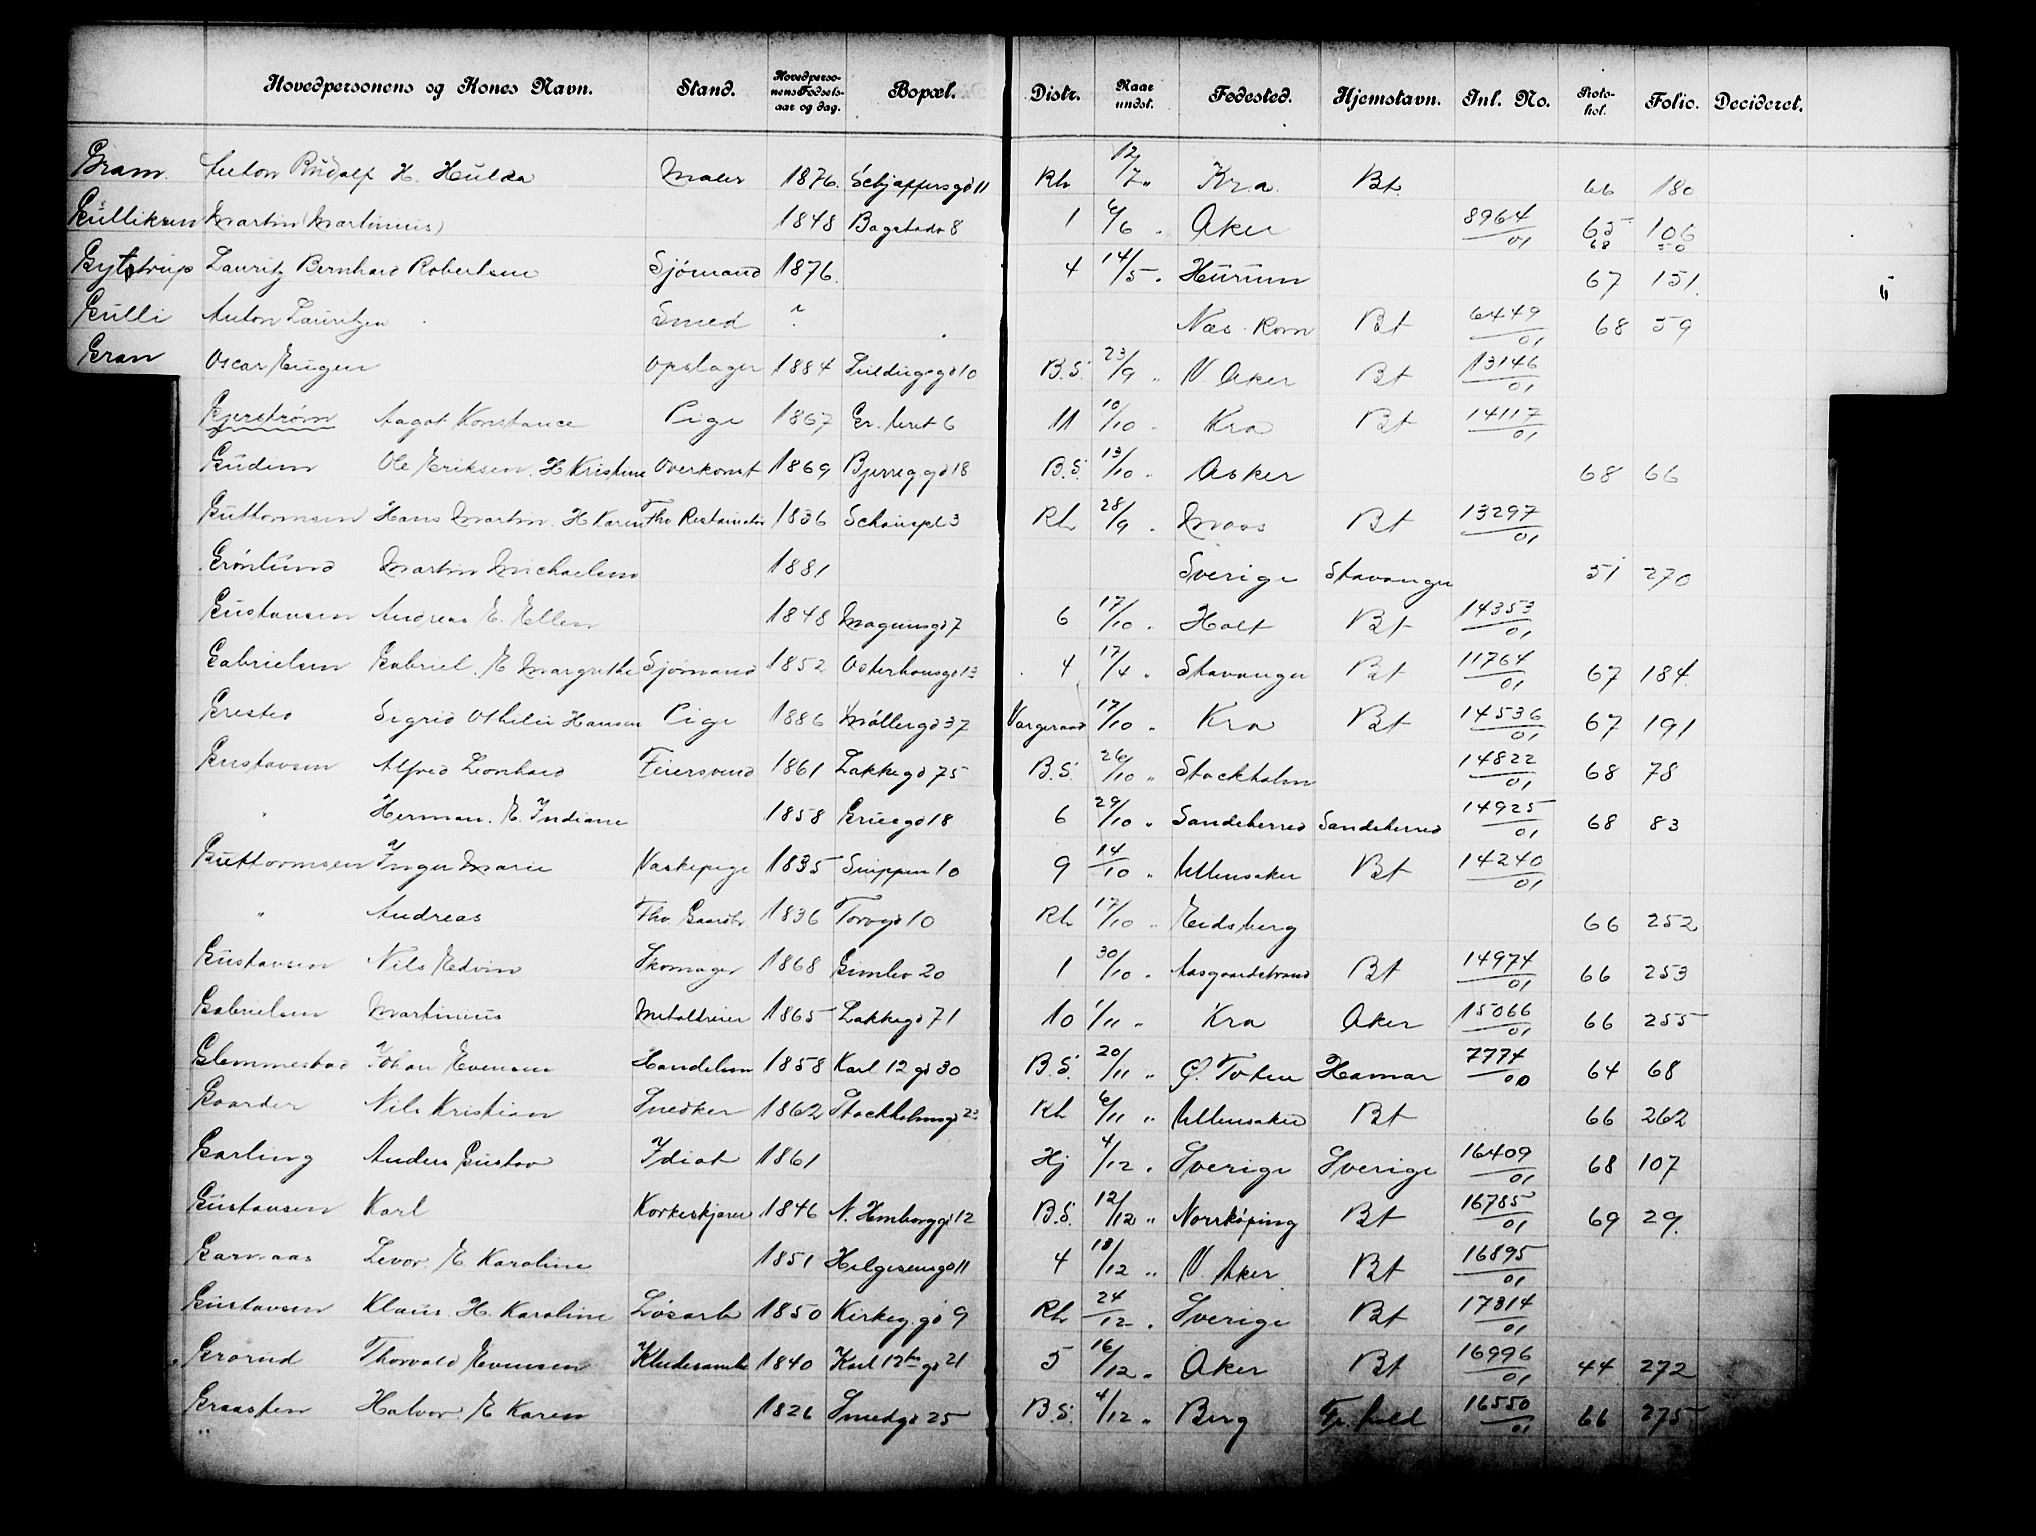 Hovedpersonens og Kones Navn. Stand. Hovedpersonens Fødselsaar og dag. Bopæl. Distr. Naar undst. Fødested. Hjemstavn. Inl. No. Protokol. Folio. Decideret.
Gram. Anton Rudolf H. Hulda Maler 1876. Schjøffersgd 11 Rh 12/7 „ Kra. Bt. 66 180
Gulliksen Martin (Martinius) 1848 Bogstadv 8 1 6/6 „ Aker 8964/01 65 106 68 50
Gytstrup Lauritz Bernhard Robertsen Sjømand 1876. 4 14/5 „ Hurum 67 151.
Gulli Anton Lauritzen Smed ? Næs. Rom Bt 6449/01 68 59
Gran Oscar Eugen Opslager 1884 10 B.S. 23/9 „ V. Aker Bt 13146/01
Gjerstrøm Aagot Konstance Pige 1867 Gr. 6 11 10/10 „ Kra Bt 14117/01
Gudim Ole Eriksen. H Kristine Overkonst 1869 Bjerreggd 18 B.S. 13/10 „ Asker 68 66
Guttormsen Hans Martin. H Karen Fhv Restauratør 1836 Schouspl 3 Rh 28/9 „ Moss Bt 13297/01
Grønlund Martin Michaelsen 1881 Sverige Stavanger 51 270
Gustavsen Andreas E. Ellen 1848 Magnusgd 7 6 17/10 „ Holt Bt 14353/01
Gabrielsen Gabriel. E Margrethe Sjømand 1852 Osterhausgd 13 4 17/4 „ Stavanger Bt 11764/01 67 184.
Grested Sigrid Othilie Hansen Pige 1886 Møllergd 37 Vargeraad 17/10 „ Kra Bt 14536/01 67 191
Gustavsen Alfred Leonhard Feiersvend 1861 Lakkegd 75 B.S. 26/10 „ Stockholm 14822/01 68 78
„ Herman. E. Indiane 1858 Gruegd 18 6 29/10 „ Sandeherred Sandeherred 14925/01 68 83
Guttormsen Inger Marie Vaskepige 1835 Snippen 10 9 14/10 „ Ullensaker Bt 14240/01
„ Andreas Fhv Gaardbr 1836 Torvgd 10 Rh 17/10 „ Eidsberg 66 252
Gustavsen Nils Edvin Skomager 1868 Gimlev 20 1 30/10 „ Aasgaardstrand Bt 14974/01 66 253
Gabrielsen Martinius Metaldreier 1865 Lakkegd 71 10 1/11 „ Kra Aker 15066/01 66 255
Glemmestad Johan Evensen Handelsm 1858 Karl 12 gd 30 B.S. 20/11 „ Ø. Toten Hamar 7774/00 64 68
Gaarder Nils Kristian Snedker 1862 Stockholmsgd 23 Rh 6/11 „ Ullensaker Bt 66 262
Garling Anders Gustav Idiot 1861 Hj 4/12 „ Sverige Sverige 16409/01 68 107
Gustavsen Karl Korkeskjærer 1846 N. Hmborggd 12 B.S. 12/12 „ Norrköping Bt 16785/01 69 29.
Garnaas Levor. E. Karoline 1851 Helgesensgd 11 4 18/12 „ V. Aker Bt 16895/01
Gustavsen Klaus. H. Karoline Løsarb 1850 Kirkeg. gd 9 Rh 24/12 „ Sverige Bt 17314/01
Grorud Thorvald Evensen Kludesamler 1840 Karl 12te gd 21 5 16/12 „ Aker Bt 16996/01 44 272
Graasten Halvor. E Karen 1826 Smedgd 25 B.S. 4/12 „ Berg Fr. hald 16550/01 66 275
„